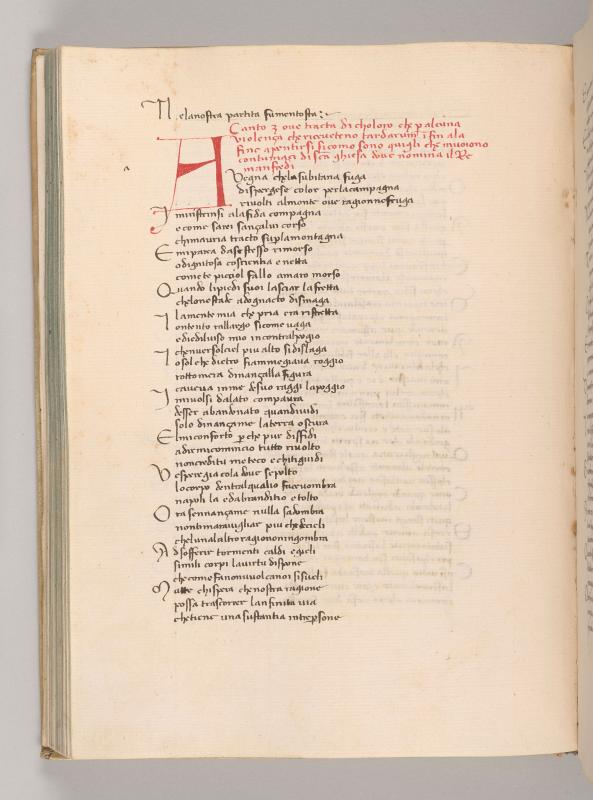 N elanostra partita fumentosta:~
Canto 3 oue tracta di choloro che p alcuna
violença che riceveteno tardarum̄ ī fin ala
fine apentirsi sicomo sono quigli che muoiono
contumaci di sc̄a ghiesa doue nomina il Re
manfredi
A Vegna chelasubitana fuga
dispergese color perlacampagna
riuolti almonte oue ragionnefruga
I mi ristrinsi alafida compagna
e come sarei sança lui corso
chi mauria tracto suplamontagna
E mi parea dasestesso rimorso
o dignitosa coscientia e netta
come te picciol fallo amaro morso
Q uando lipiedi suoi lasciar lafretta
chelonestade adognacto dismaga
I lamente mia che pria era ristretta
ontento rallargo sicome uaga
ediediluiso mio incontralpogio
I chenuersolciel piu alto si dislaga
I o sol che dietro fiammegiaua roggio
rottomera dinançalla figura
I caueua inme desuo raggi lapoggio
mi uolsi dalato compaura
desser abandonato quandiuidi
solo dinançame laterra oscura
E lmi conforto p che pur diffidi
adirmicomincio tutto riuolto
noncreditu meteco echitiguidi
V espergia cola doue sepolto
lo corpo dentralqualio faceuombra
napoli la edabranditio etolto
O ra sennançame nulla sadombra
nontimarauigliar piu chedecieli
chelunalaltro ragiononingombra
A d sofferir tormenti caldi e gieli
simili corpi lauirtu dispone
che come fanonuolcanoi sisueli
M atte chispera chenostra ragione
possa trascorrer lanfinita uia
chetiene una sustantia intrepsone